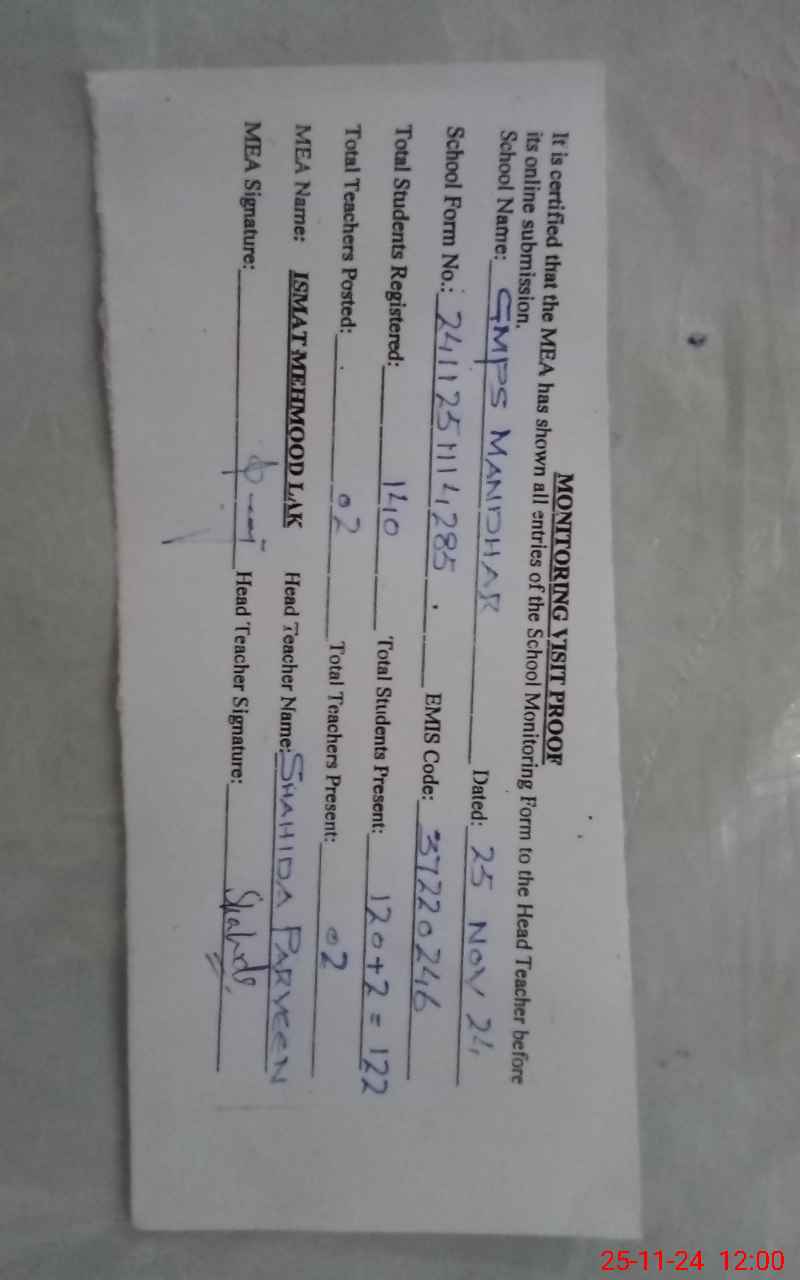 MONITORING VISIT PROOF
It is certified that the MEA has shown all entries of the School Monitoring Form to the Head Teacher before
its online submission.
School Name: GMPS MANDHAR Dated: 25 NOV 24
School Form No.: 2411251114285 . EMIS Code: 37220246
Total Students Registered: 140 Total Students Present: 120+2 = 122
Total Teachers Posted: 02 Total Teachers Present: 02
MEA Name: ISMAT MEHMOOD LAK Head Teacher Name: SHAHIDA PARVEEN
MEA Signature: Head Teacher Signature: Shahida
25-11-24 12:00